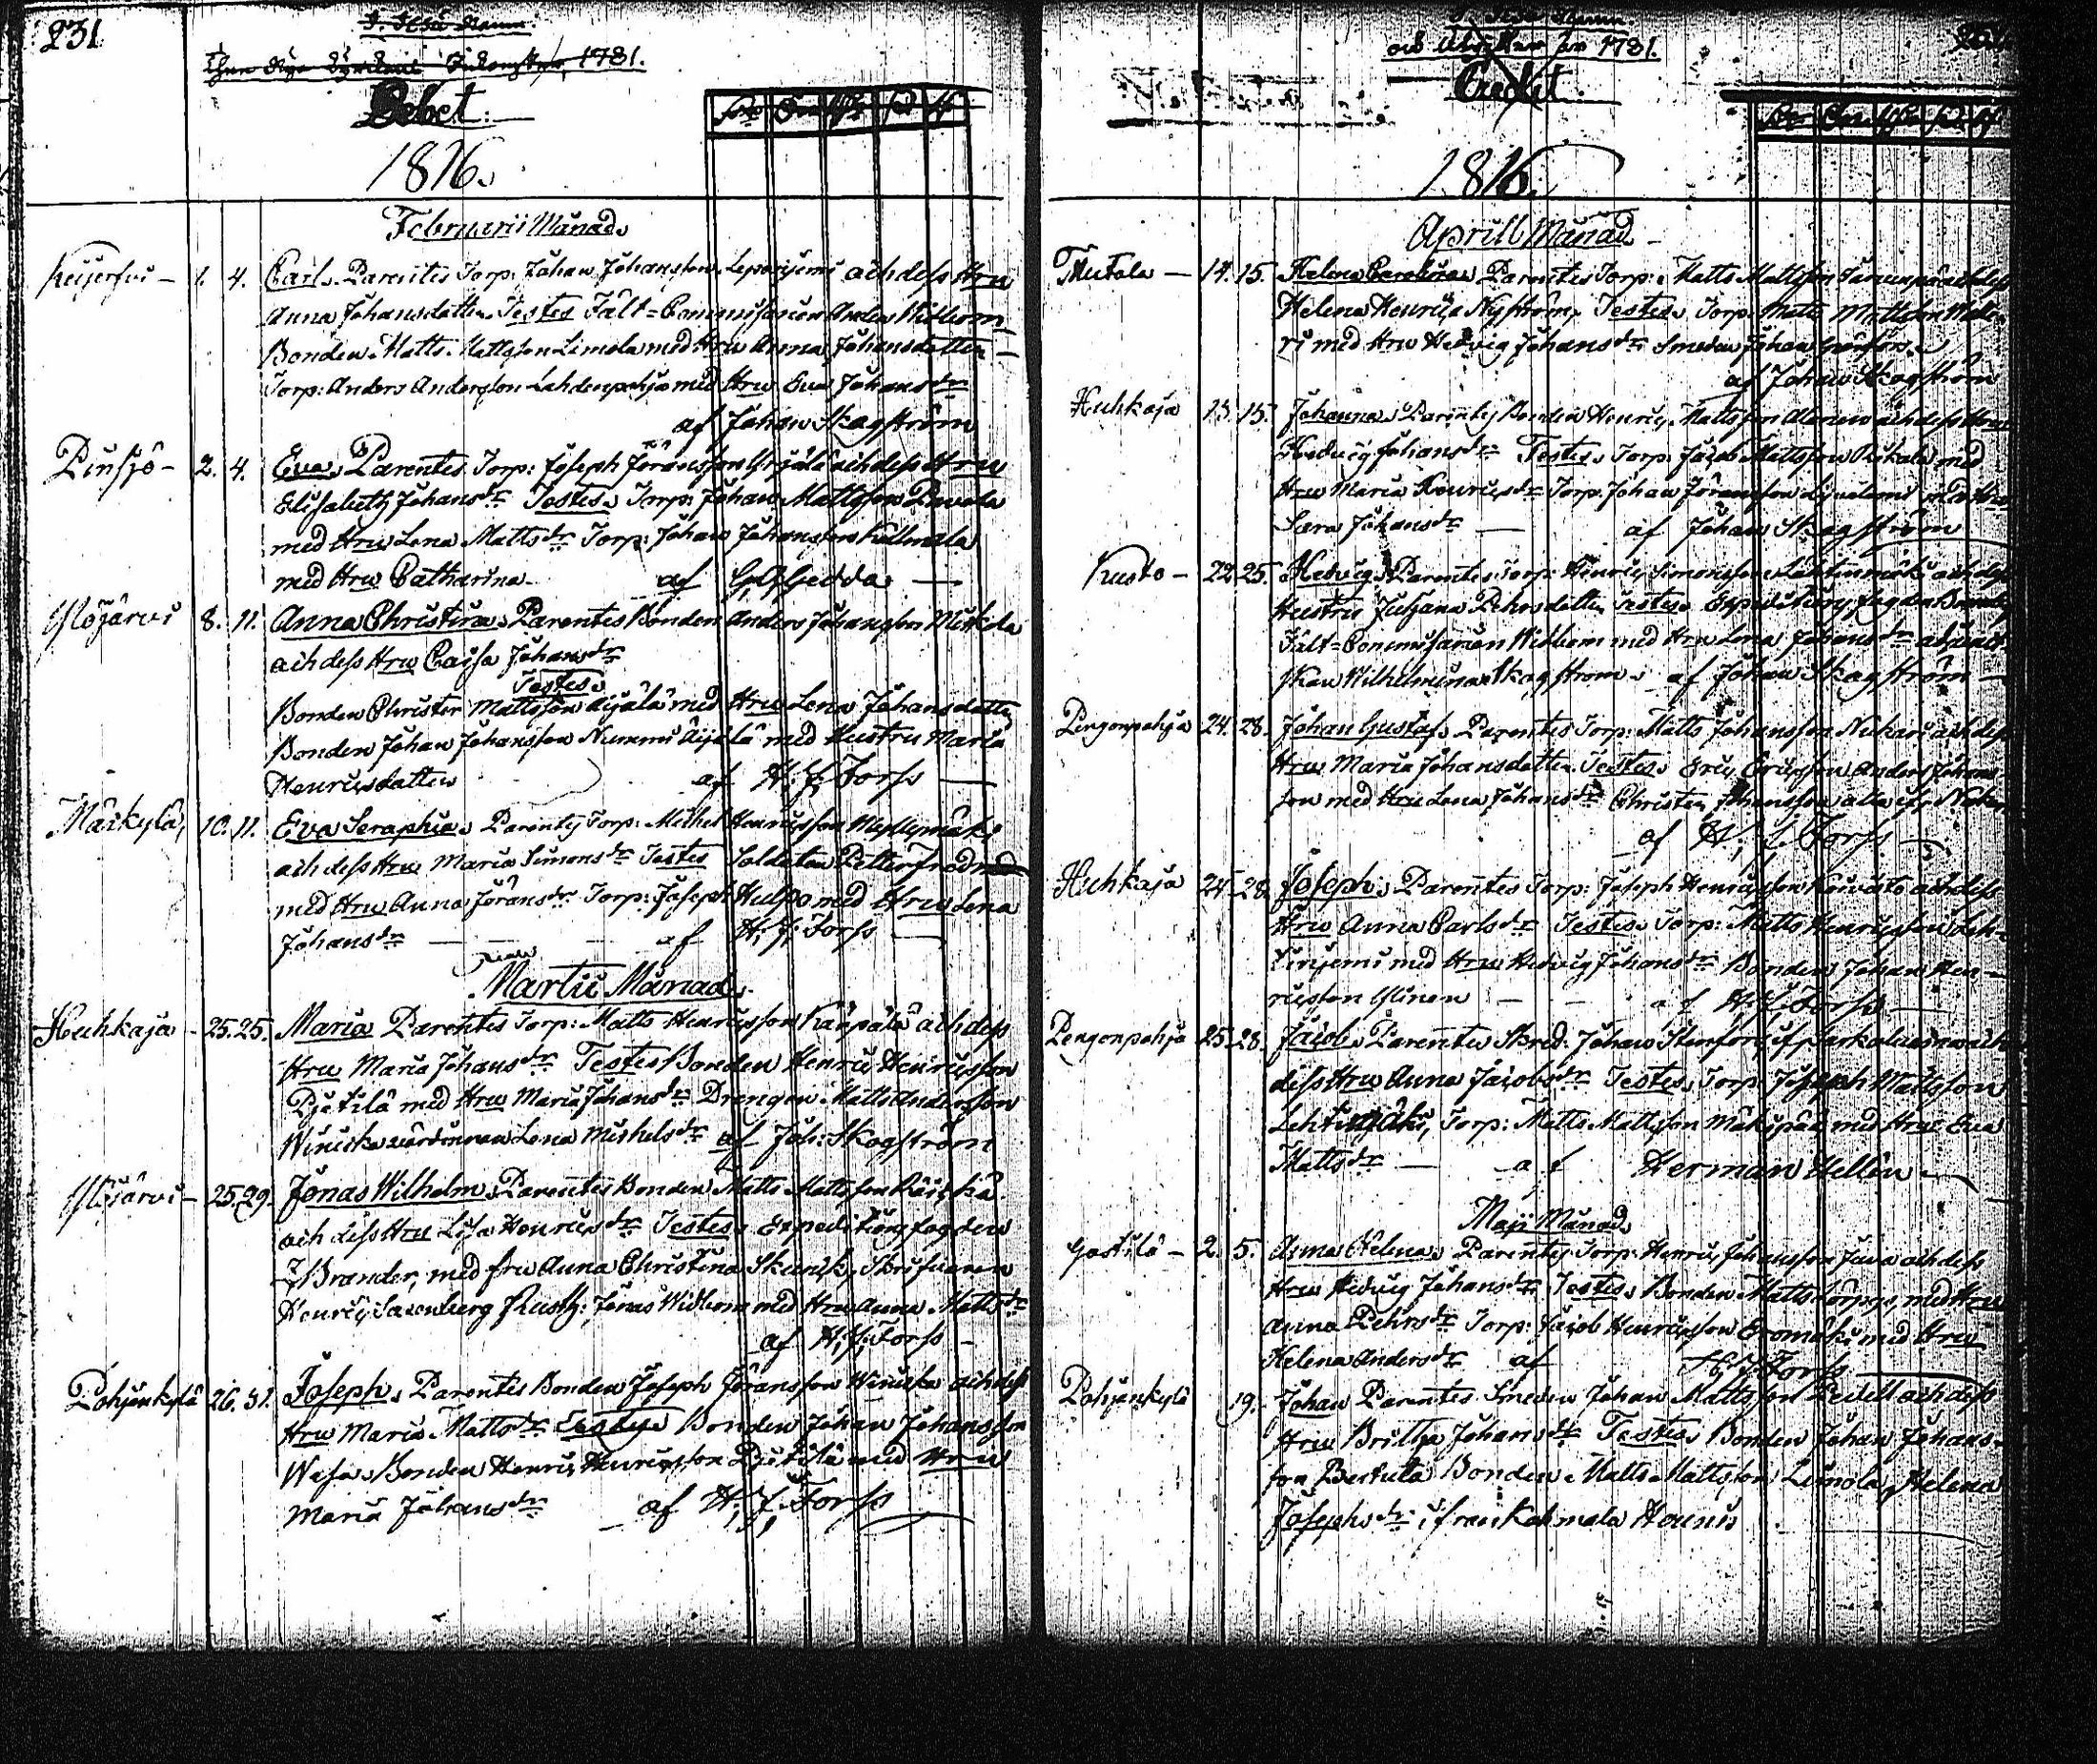 231
I. Jesu Namn
1781.
Debet.
1816.
Februarii Månad.
Keijerfvi - 1. 4. Carl. Parentes Torp: Johan Johansson Leponjemi och dess Hru
Anna Johansdotter. Testes Fält-Commissarien Anders Widbom
Bonden Matts Mattsson Limola med Hru Anna Johansdotter
Torp: Anders Andersson Lahdenpohja med Hru Eva Johansdr
af Johan Skogström
Pinsjö - 2. 4. Eva. Parentes Torp: Joseph Jöransson Yrjälä och dess Hru
Elisabeth Johansdr Testes. Torp: Johan Mattsson
med Hru Lena Mattsdr Torp: Johan Johansson Kallmala
med Hru Catharina af G. Gedda
Ylöjärvi 8. 11. Anna Christina. Parentes Bonden Anders Johansson Mikkola
och dess Hru Caisa Johansdr
Testes.
Bonden Christer Mattsson Äijälä med Hru Lena Johansdotter
Bonden Johan Johansson Nummi Äijälä med Hustru Maria
Henricsdotter af H. J. Forss
Märkylä, 10. 11. Eva Seraphia. Parentes Torp: Michel Henricsson Myllymäki
och dess Hru Maria Simonsdr Testes Soldaten Petter
med Hru Anna Jöransdr Torp: Joseph Hulpo med Hru Lena
Johansdr af H. J. Forss
Martii Månad.
Huhkaja - 25. 25. Maria Parentes Torp: Matts Henricsson Kärpälä och dess
Hru Maria Johansdr Testes Bonden Henric Henricsson
Pjetilä med Hru Maria Johansdr Drengen Matts Andersson
Winicka värdinnan Lena Michelsdr af Joh: Skogström
Ylöjärvi - 25. 29. Jonas Wilhelm. Parentes Bonden Matts Mattsson Räickä
och dess Hru Lisa Henricsdr Testes. Expeditions fogden
J Brander, med fru Anna Christina Skrifvaren
Henric Saxenberg Rusth: Jonas Widbom med Hru Anna Mattsdr
af H. J. Forss
Pohjankylä 26. 31. Joseph. Parentes Bonden Joseph Jöransson Winicka och dess
Hru Maria Mattsdr Testes Bonden Johan Johansson
Wasa. Bonden Henric Henricsson Pjetilä med Hru
Maria Johansdr af H. J. Forss
och Utgifter för 1781.
Credit.
1816.
Aprill Månad
Mutala - 14. 15. Helena Carolina. Parentes Torp: Matts Mattsson och dess
Helena Henrica Nyström, Testes. Torp: Matts Mattsson
ri med Hru Hedvig Johansdr Smeden Johan
af Johan Skogström
Huhkaja 15. 15. Johanna. Parentes Bonden Henric Mattsson Alanen och dess Hru
Hedvig Johansdr Testes. Torp: Jacob Mattsson med
Hru Maria Henricsdr Torp: Johan Jöransson med Hru
Sara Johansdr af Johan Skogström
Kusto - 22 25. Hedvig. Parentes Torp: Henric Simonsson och dess
Hustru Juliana Pehrsdotter Testes. Expeditions fogden Brander
Fält-Commissarien Widbom med Hru Lena Johansdr
Wilhelmina Skogström. af Johan Skogström
Pengonpohja 24. 28. Johan Gustaf. Parentes Torp: Matts Johansson Nukari och dess
Hru Maria Johansdotter Testes. Eric Ericsson Anders Johans-
son med Hru Lena Johansdr Christer Johansson alla ifr:
af H. J. Forss
Huhkaja 24. 28. Joseph. Parentes Torp: Joseph Henricsson Koivisto och dess
Hru Anna Carlsdr Testes. Torp: Matts Henricsson
med Hru Hedvig Johansdr Bonden Johan Hen-
ricsson Ylinen af H. J. Forss
Pengonpohja 25. 28. Jacob. Parentes Skred: Johan Stenfors ifr och
dess Hru Anna Jacobsdr Testes. Torp: Joseph Mattsson
Lehtimäki, Torp: Matts Mattsson Mäkipää med Hru Eva
Mattsdr af Herman Hellén
Maji Månad.
Gastilä - 2. 5. Anna Helena. Parentes Torp: Henric Johansson Juva och dess
Hru Hedvig Johansdr Testes. Bonden Matts med Hru
Anna Pehrsdr Torp: Jacob Henricsson med Hru
Helena Andersdr af H. J. Forss
Pohjankylä 19. Johan Parentes Smeden Johan Mattsson och dess
Hru Britha Johansdr Testes. Bonden Johan Johans-
son Pertula Bonden Matts Mattsson Limola, Helena
Josephsdr ifrån Kahmala Hounis